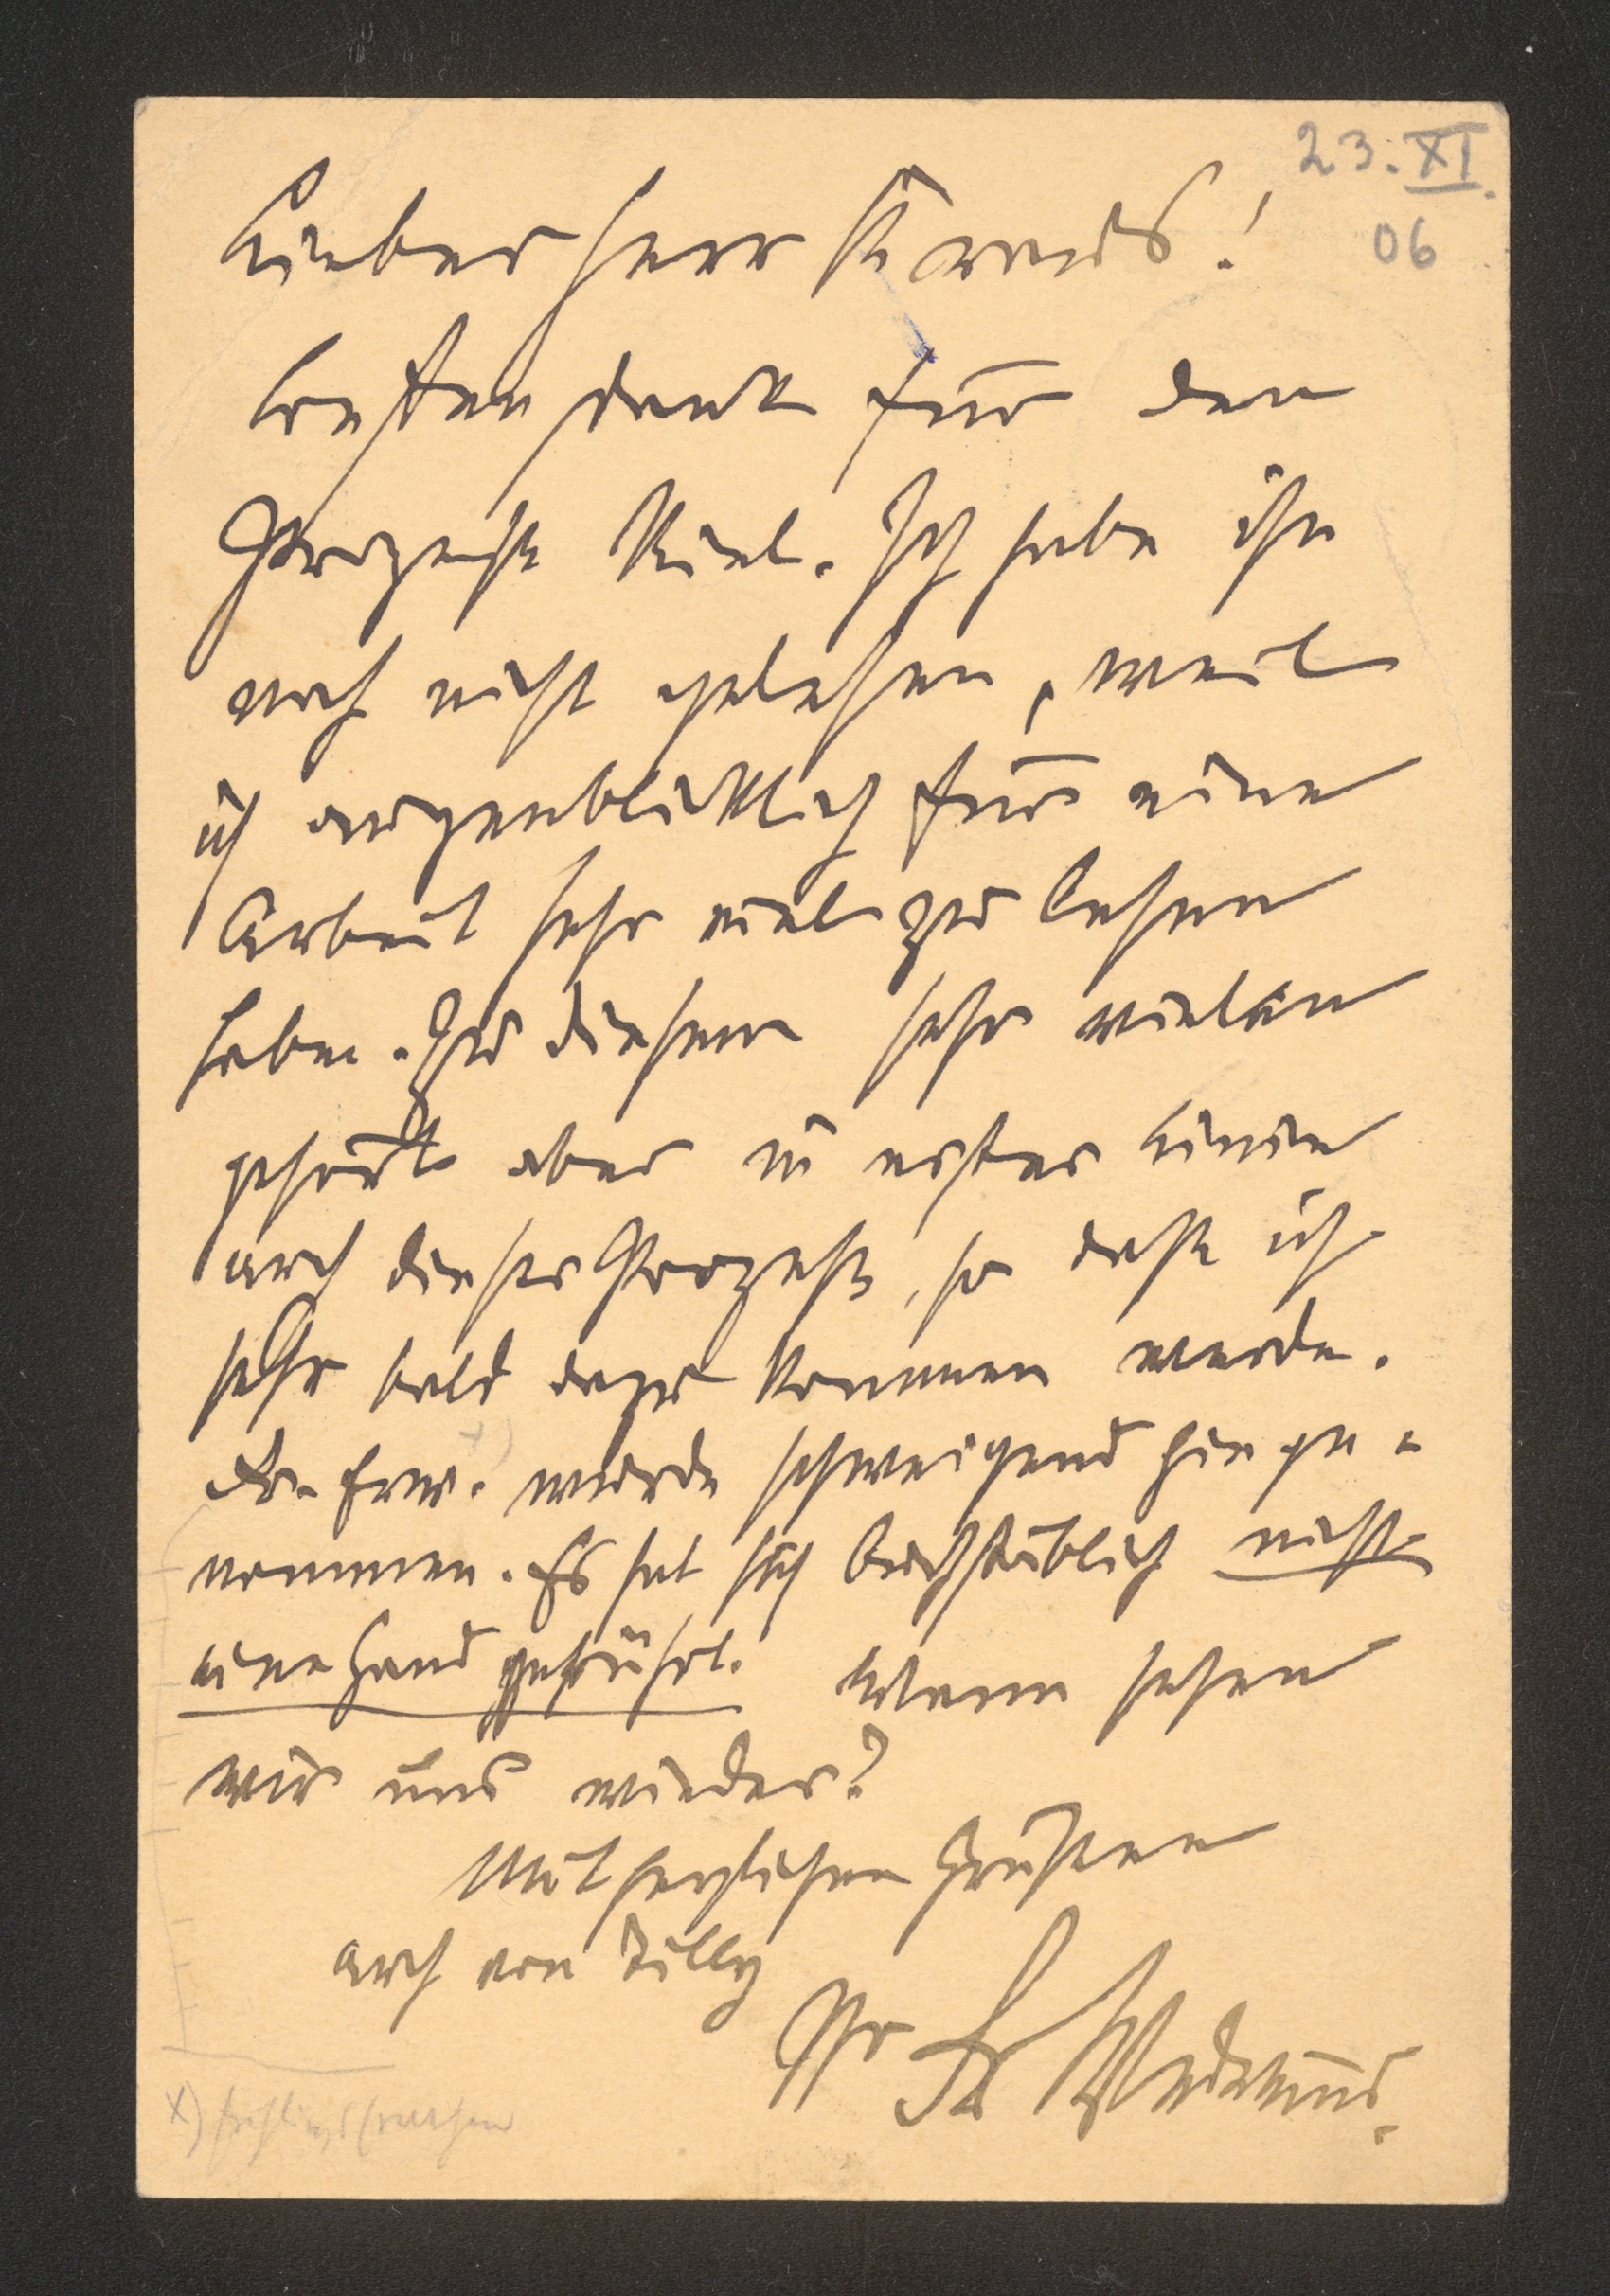 23. XI.
06
Lieber Herr Kraus!
besten Dank für den
Prozeß Riel. Ich habe ihn
noch nicht gelesen, weil
ich augenblicklich für eine
Arbeit sehr viel zu lesen
habe. Zu diesem sehr vielen
gehört aber in erster Linie
auch dieser Prozeß, so daß ich
sehr bald dazu kommen werde.
Fr. Erw. x) wurde schweigend hinge-
nommen. Es hat sich buchstäblich nicht
eine Hand gerührt. Wann sehen
wir uns wieder?
Mit herzlichen Grüßen
auch von Tilly
Ihr Fr Wedekind.
x) Frühlings Erwachen